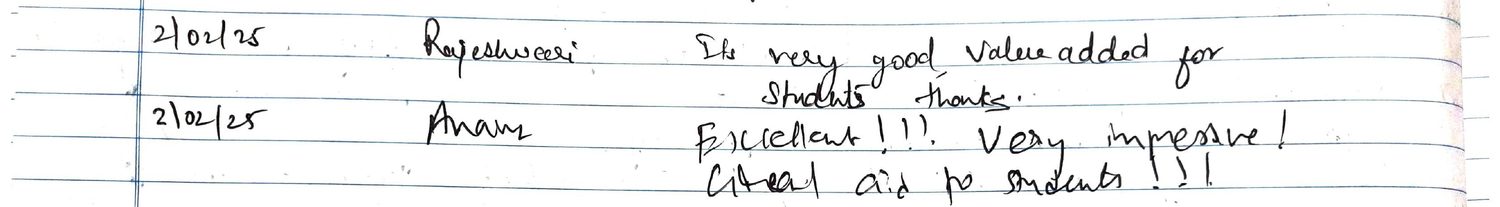 2/02/25 Rajeshweri Its very good value added for
students thanks.
2/02/25 Anam Excellent!!! Very impressive!
Great aid to students!!!